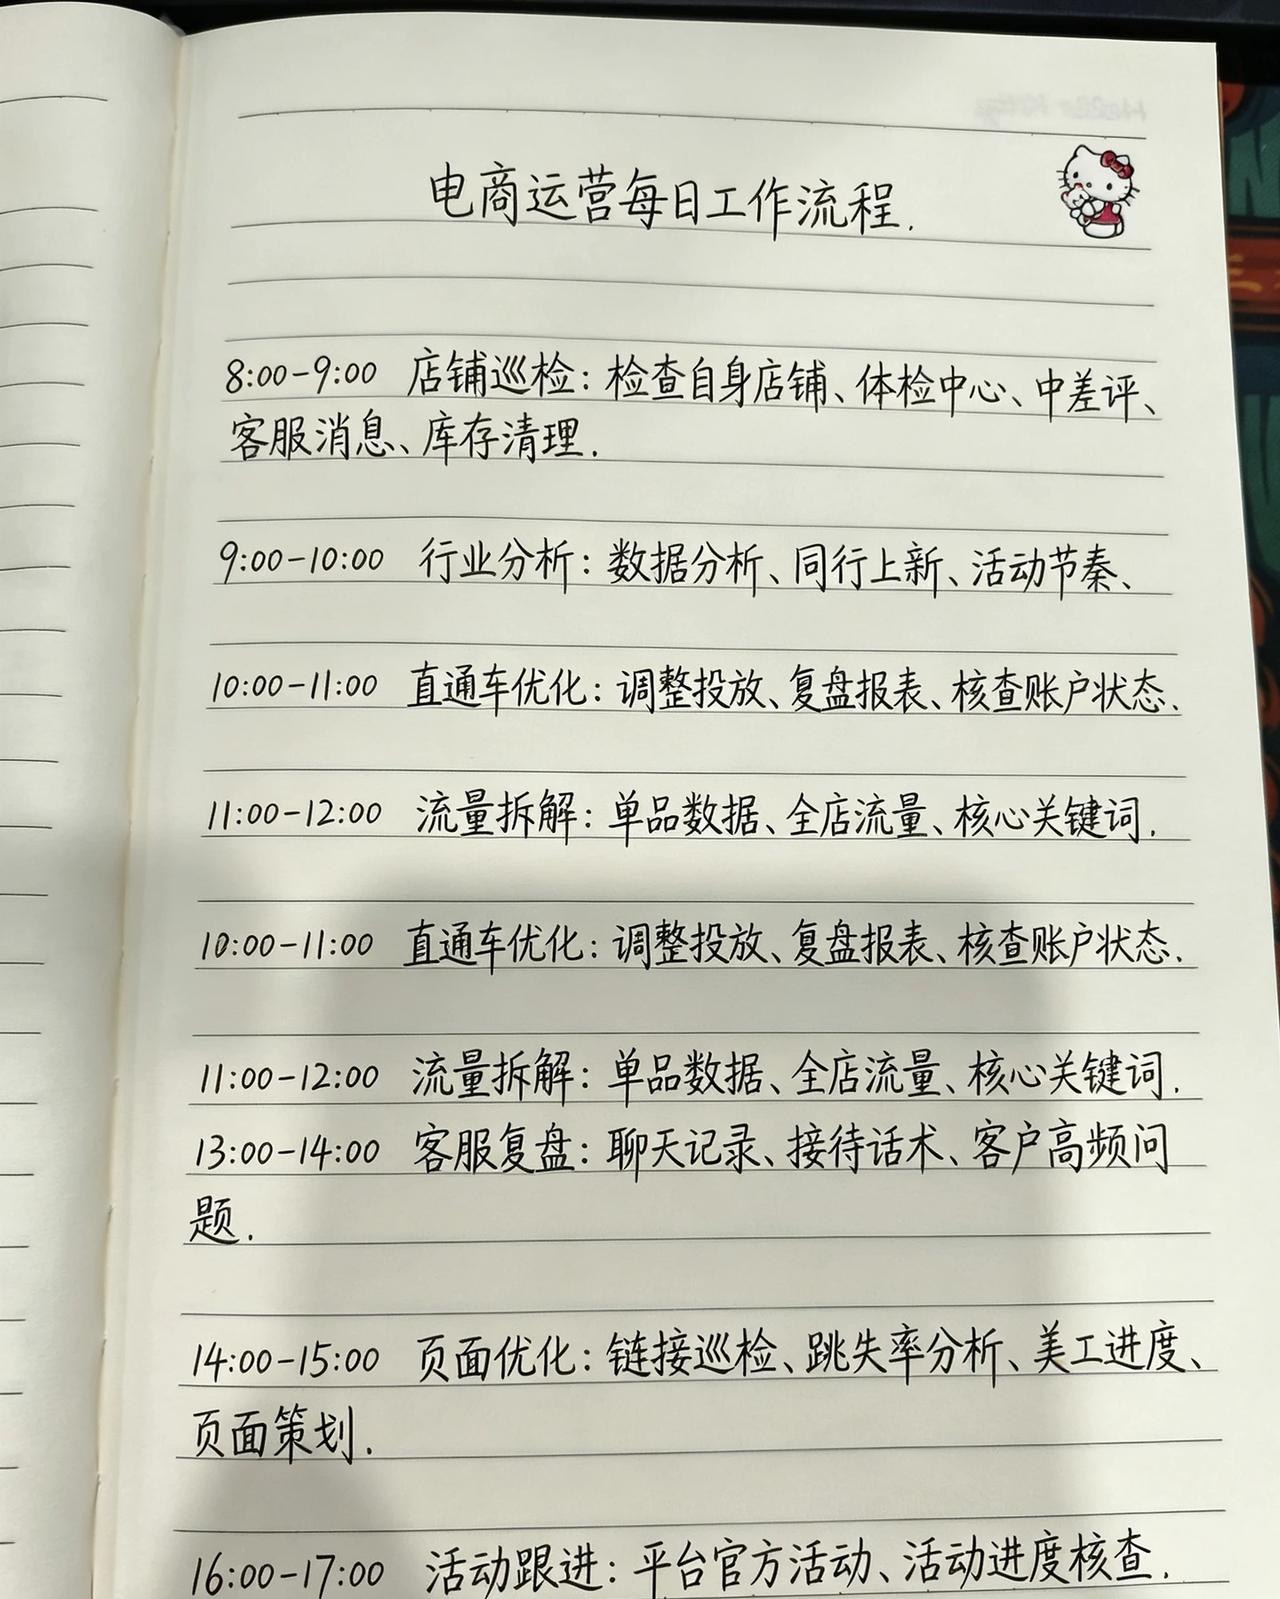 电商运营每日工作流程.
8:00-9:00 店铺巡检：检查自身店铺、体检中心、中差评、
客服消息、库存清理.
9:00-10:00 行业分析：数据分析、同行上新、活动节秦、
10:00-11:00 直通车优化：调整投放、复盘报表、核查账户状态.
11:00-12:00 流量拆解：单品数据、全店流量、核心关键词.
10:00-11:00 直通车优化：调整投放、复盘报表、核查账户状态.
11:00-12:00 流量拆解：单品数据、全店流量、核心关键词.
13:00-14:00 客服复盘：聊天记录、接待话术、客户高频问
题.
14:00-15:00 页面优化：链接巡检、跳失率分析、美工进度、
页面策划.
16:00-17:00 活动跟进：平台官方活动、活动进度核查.